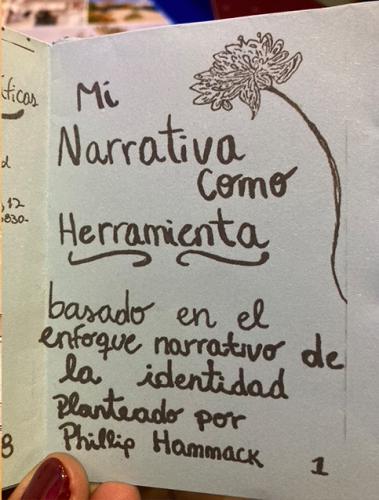 Mi
Narrativa
como
Herramienta
basado en el
enfoque narrativo de
la identidad
planteado por
Phillip Hammack
1
ficas
d
,12
830-
8